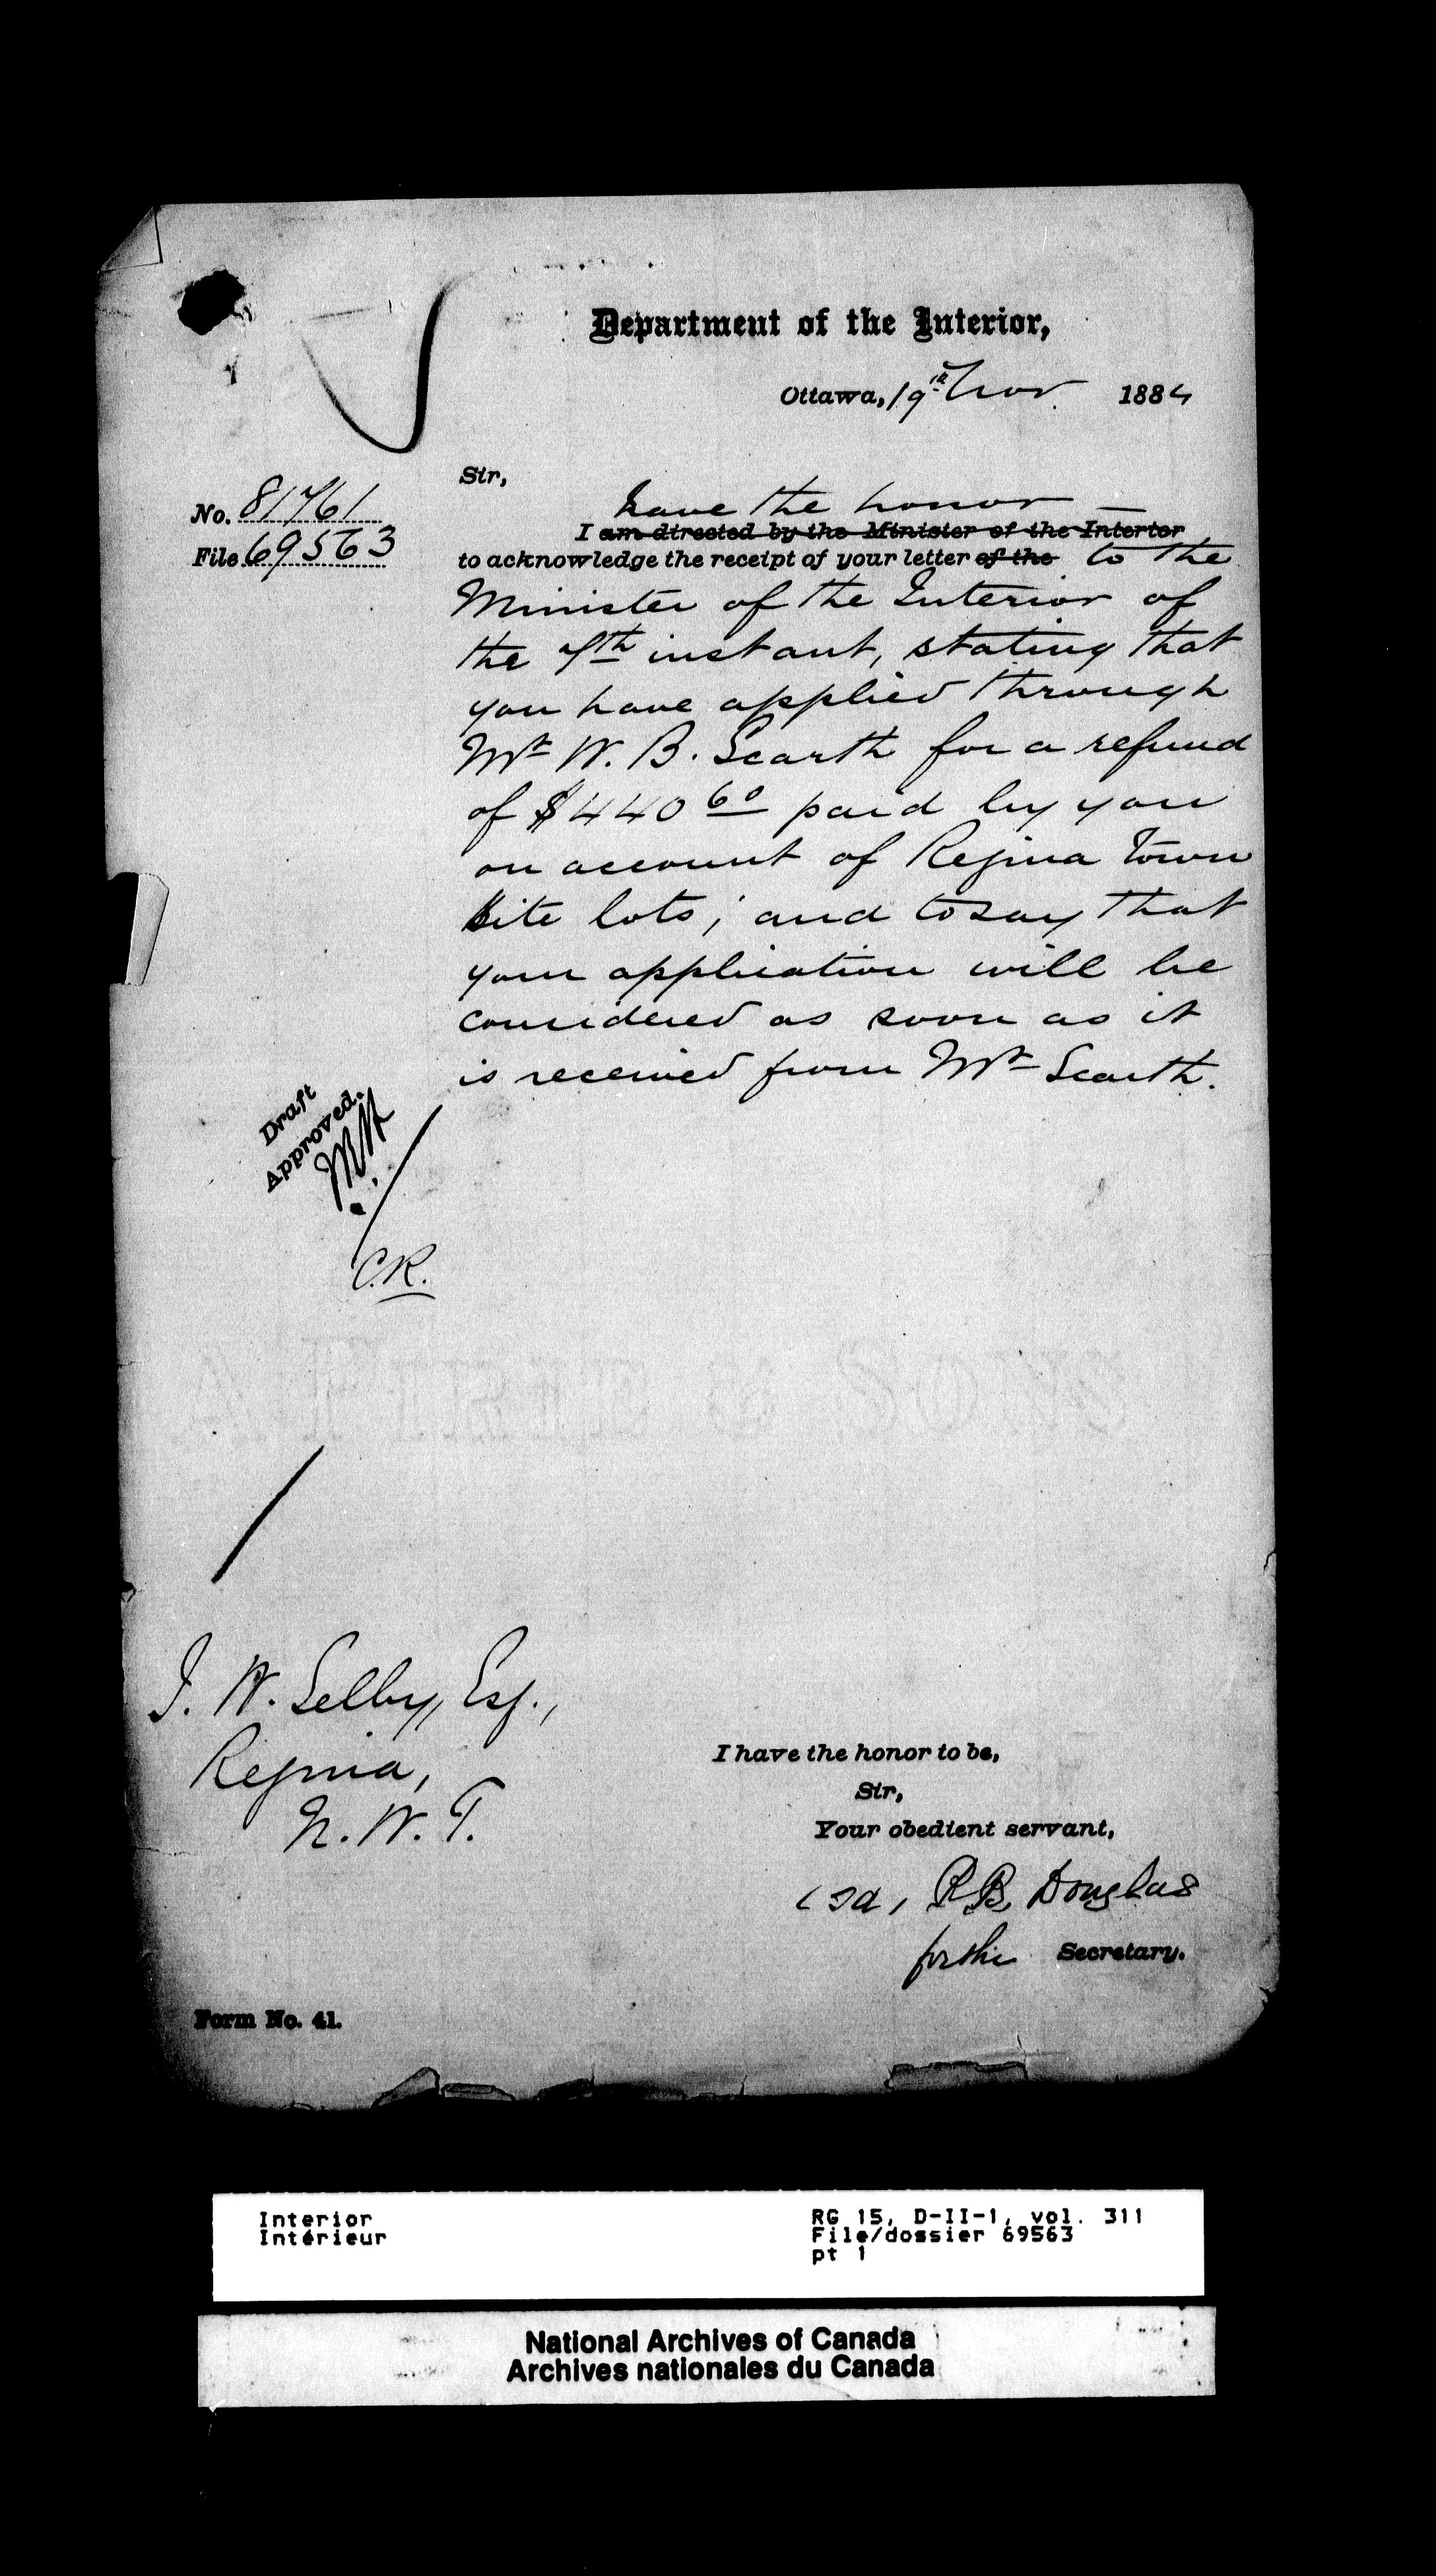 Department of the Interior,
Ottawa, 19th Nov. 1884
Sir,
No. 81761
File 69563
have the honor
I am directed by the Minister of the Interior
to acknowledge the receipt of your letter of the to the
Minister of the Interior of
the 7th instant, stating that
you have applied through
Mr W. B. Scarth for a refund
of $440 60 paid by you
on account of Regina Town
Site lots; and to say that
your application will be
considered as soon as it
is received from Mr Scarth.
Draft
Approved.
C.R.
J. W. Selby, Esq.,
Regina,
N. W. T.
I have the honor to be,
Sir,
Your obedient servant,
(sd, P B Douglas
for the Secretary.
Form No. 41.
Interior
Intérieur
RG 15, D-II-1, vol. 311
File/dossier 69563
pt 1
National Archives of Canada
Archives nationales du Canada